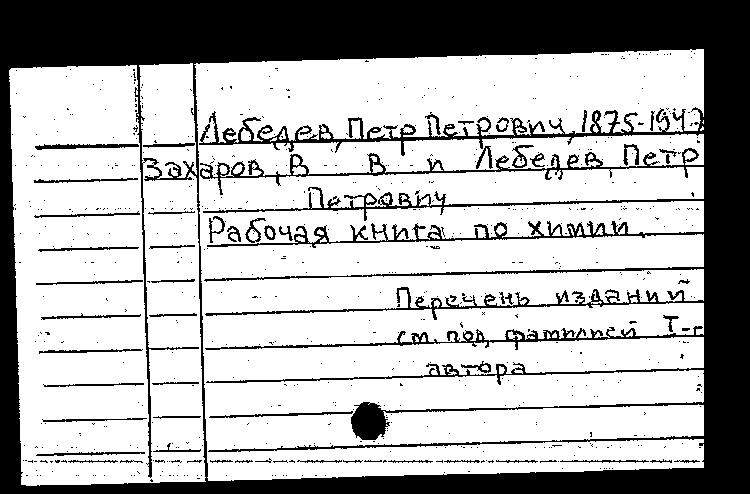 Лебедев, Петр Петрович, 1875-1947
Захаров, В В и Лебедев, Петр
Петрович
Рабочая книга по химии.
Перечень изданий
см. под фамилией I-г
автора